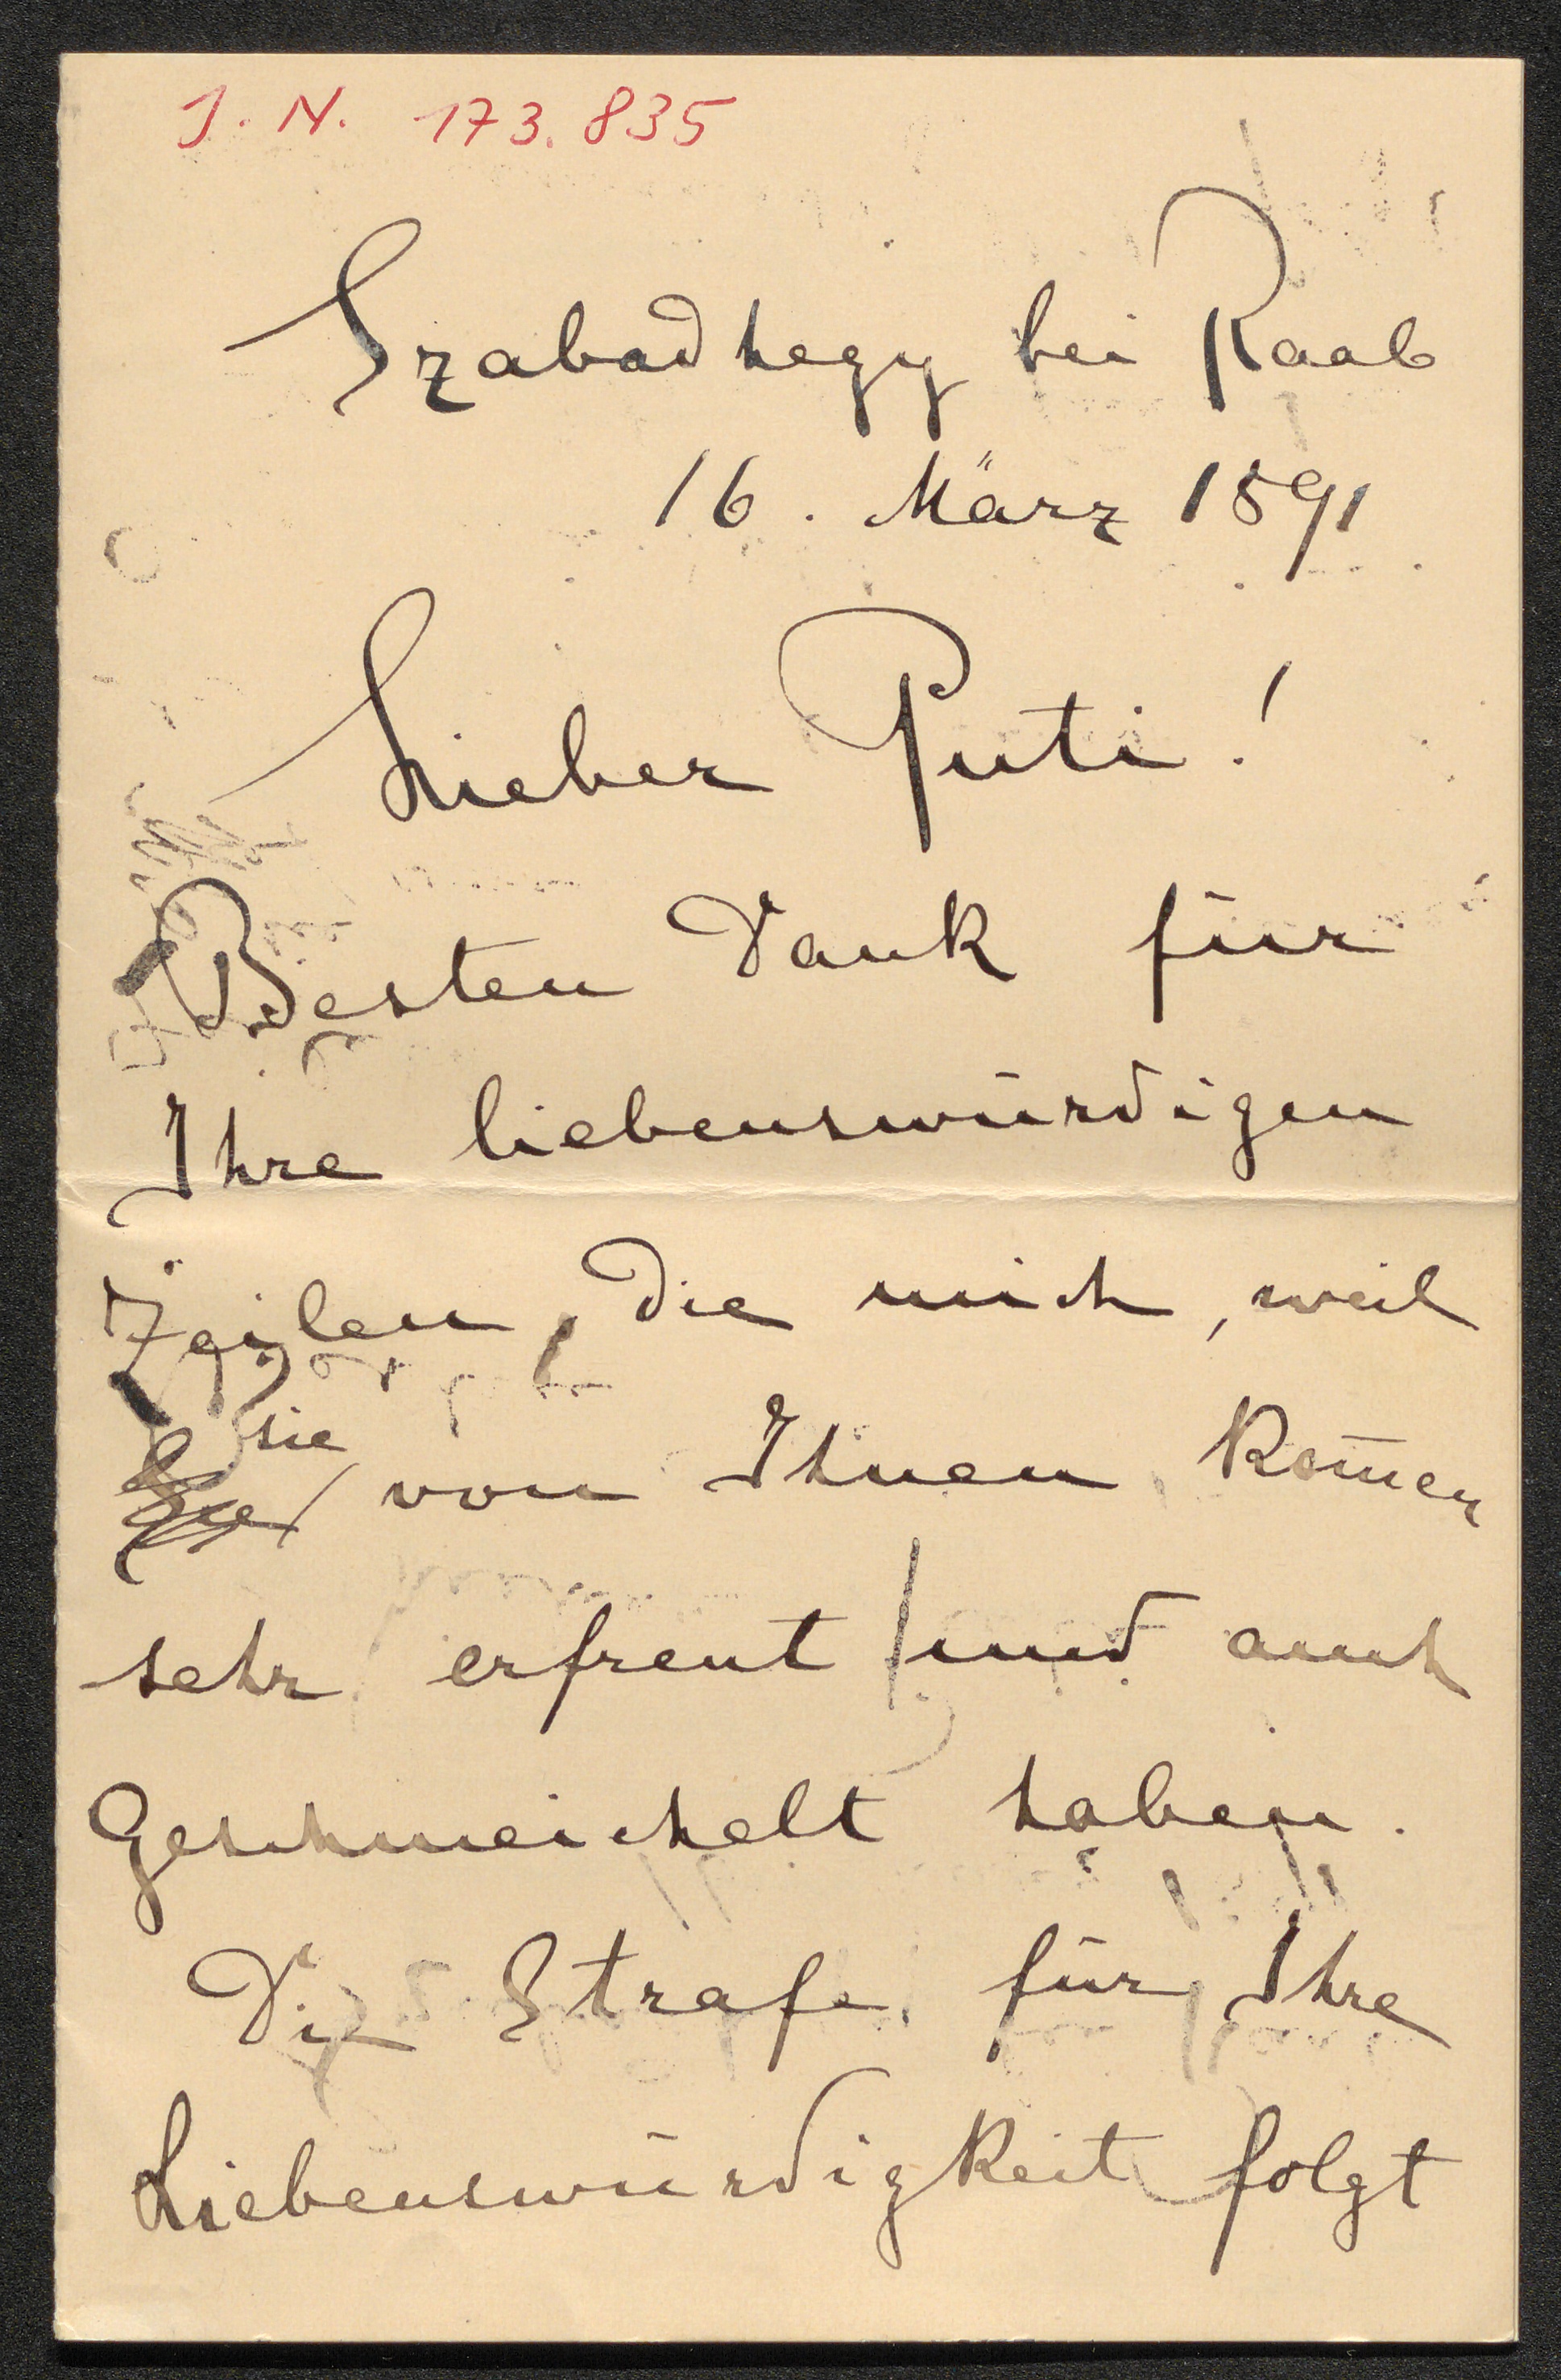 J. N. 173.835
Szabadhegy bei Raab
16. März 1891
Lieber Puti!
Besten Dank für
Ihre liebenswürdigen
Zeilen, die mich, weil
sie
Sie von Ihnen kom̄en
sehr erfreut und auch
geschmeichelt haben.
Die Strafe für Ihre
Liebenswürdigkeit folgt